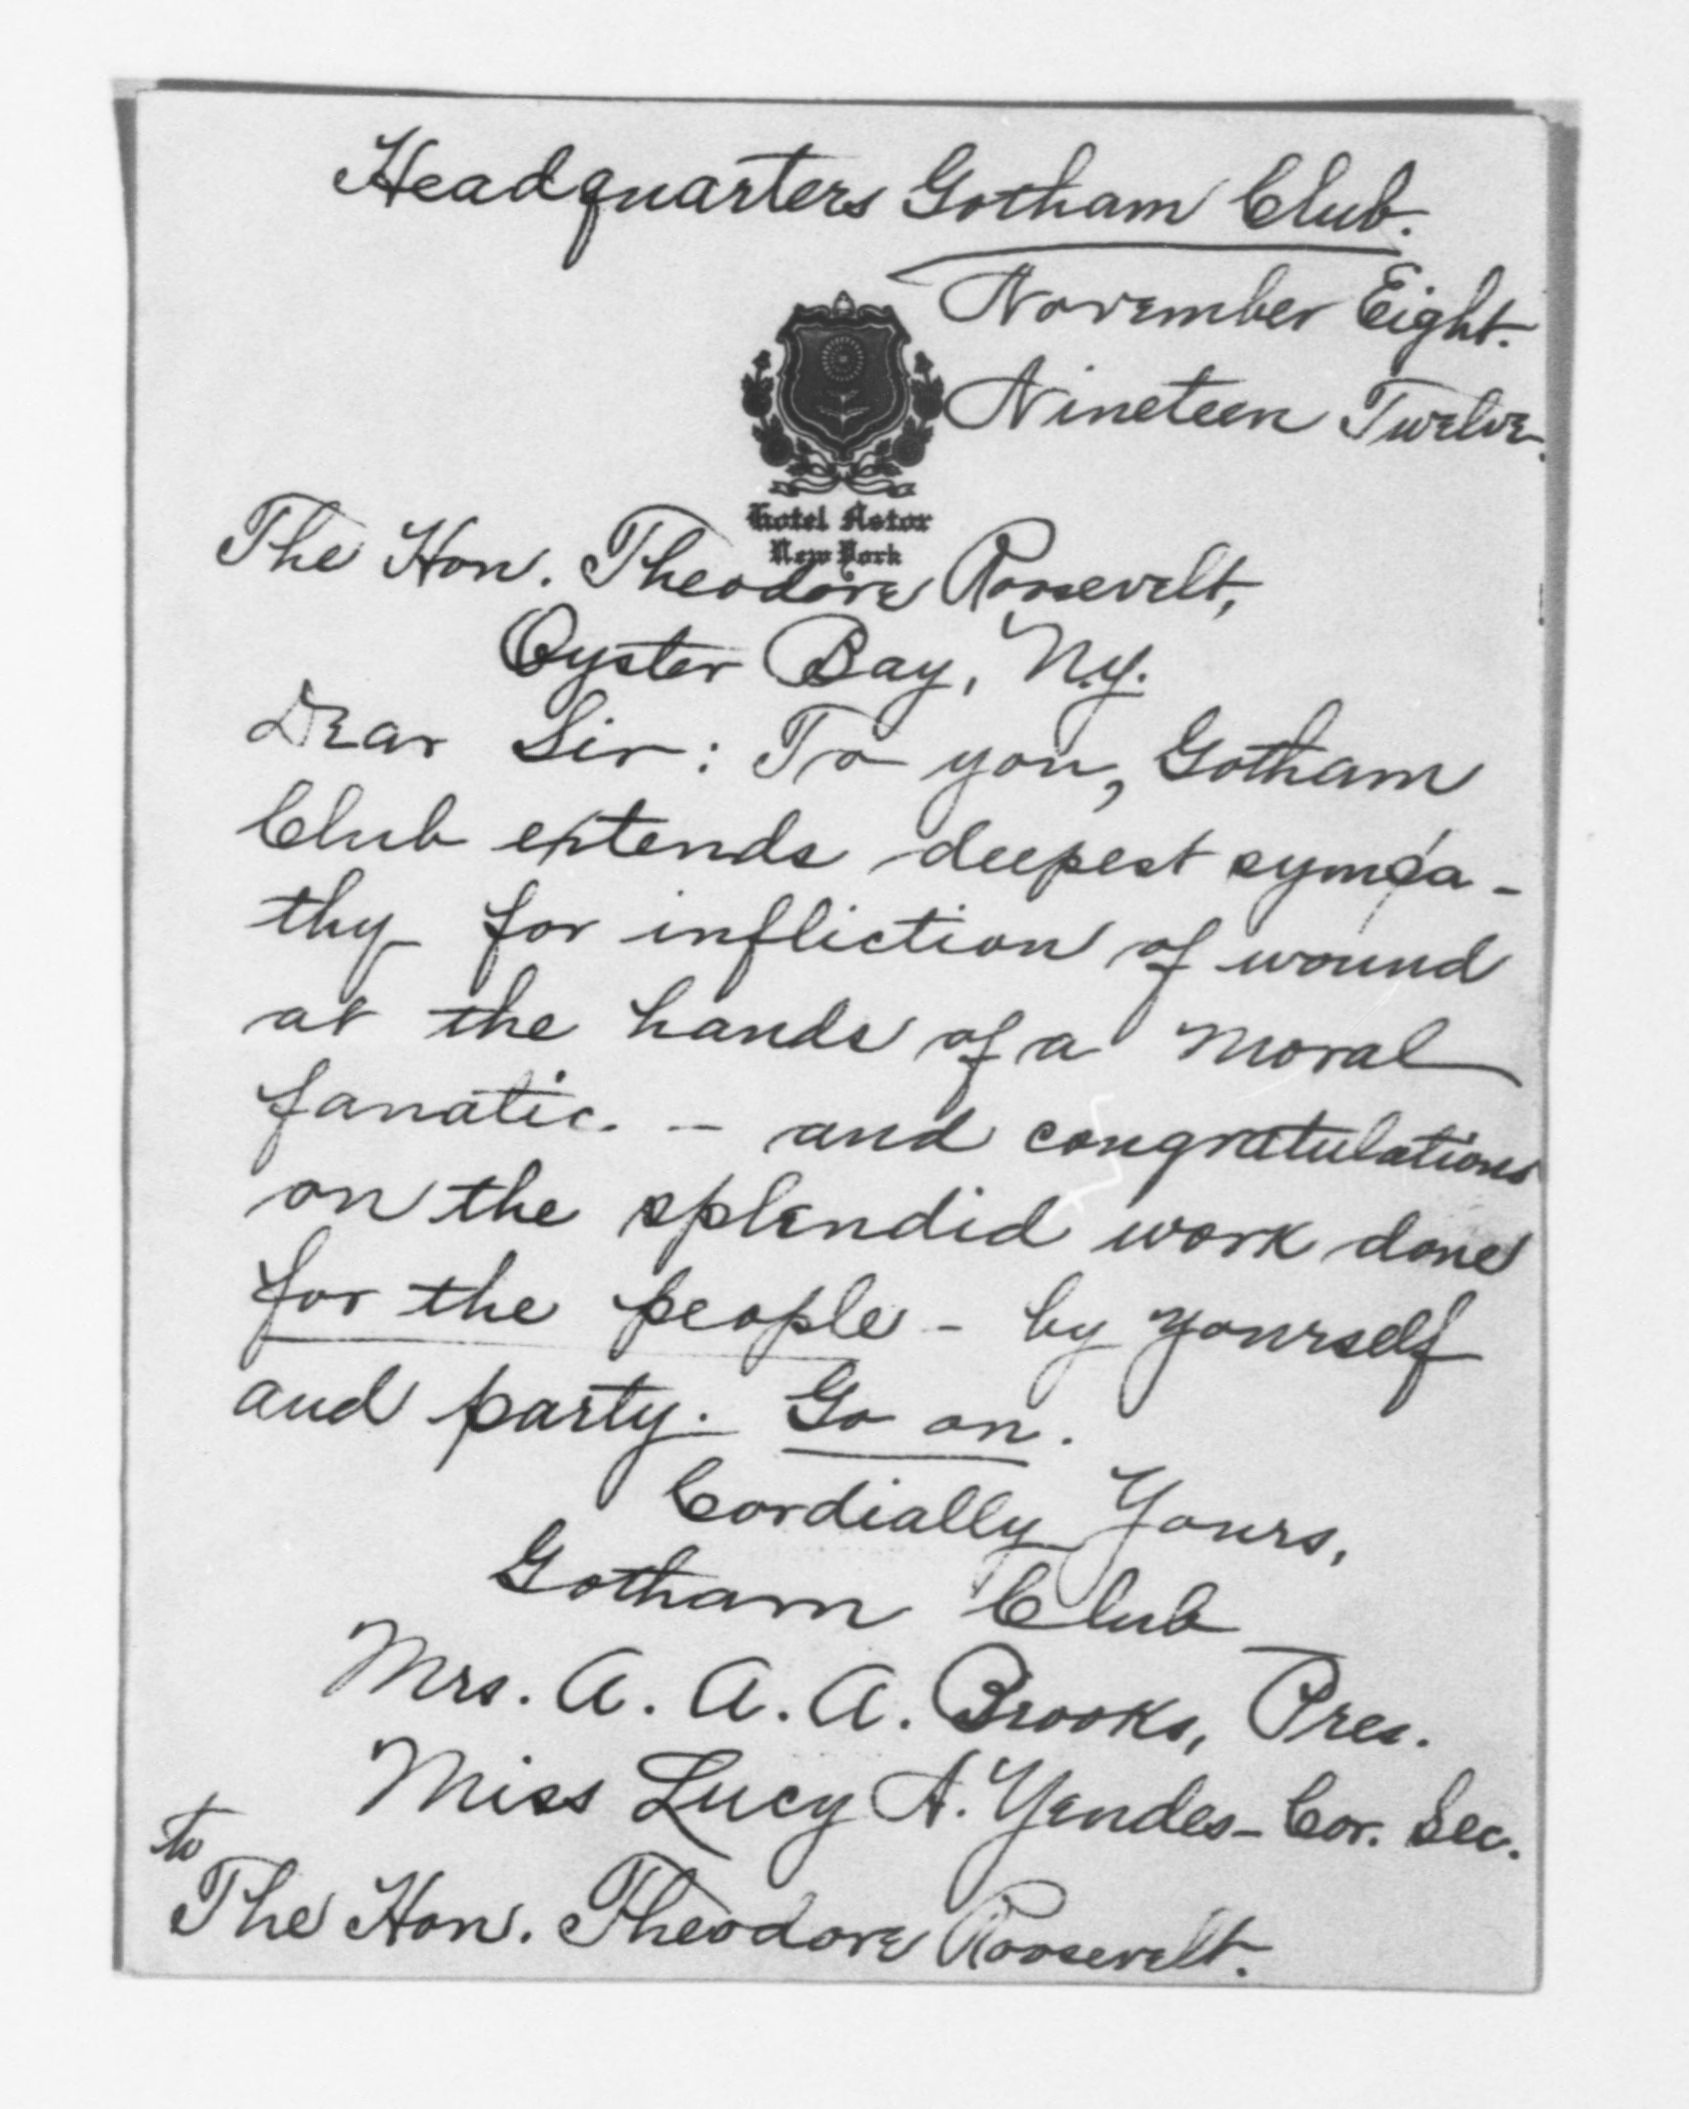 Headquarters Gotham Club.
November Eight.
Nineteen Twelve.
Hotel Astor
New York
The Hon. Theodore Roosevelt,
Oyster Bay, N.Y.
Dear Sir: To you, Gotham
Club extends deepest sympa-
thy for infliction of wound
at the hands of a moral
fanatic. - and congratulations
on the splendid work done
for the people - by yourself
and party. Go on.
Cordially Yours,
Gotham Club
Mrs. A. A. A. Brooks, Pres.
Miss Lucy A. Yendes - Cor. Sec.
to
The Hon. Theodore Roosevelt.